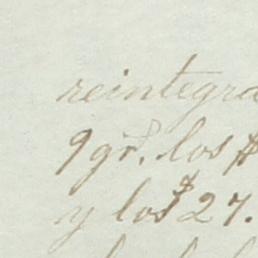 reintegra
9 gr. los $
y los $ 27.